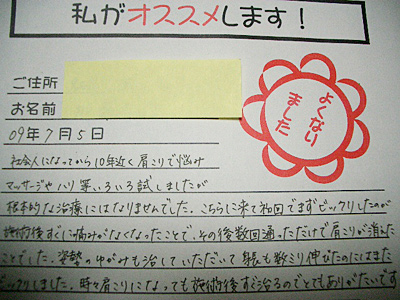 私がオススメします!
ご住所
お名前
よくなり
ました
09年7月5日
社会人になってから10年近く肩こりで悩み
マッサージやハリ等いろいろ試しましたが
根本的な治療にはなりませんでした。こちらに来て初回でまずビックリしたのが
施術後すぐに痛みがなくなったことで、その後数回通っただけで肩こりが消えた
ことでした。姿勢のゆがみも治していただいて身長も数ミリ伸びたのにはまた
ビックリしました。時々肩こりになっても施術後すぐ治るのでとてもありがたいです